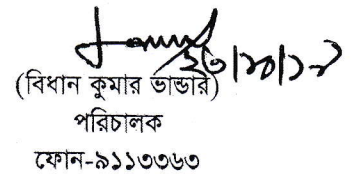 (বিধান কুমার ভান্ডার)
পরিচালক
ফোন-৯১১৩৩৬৩